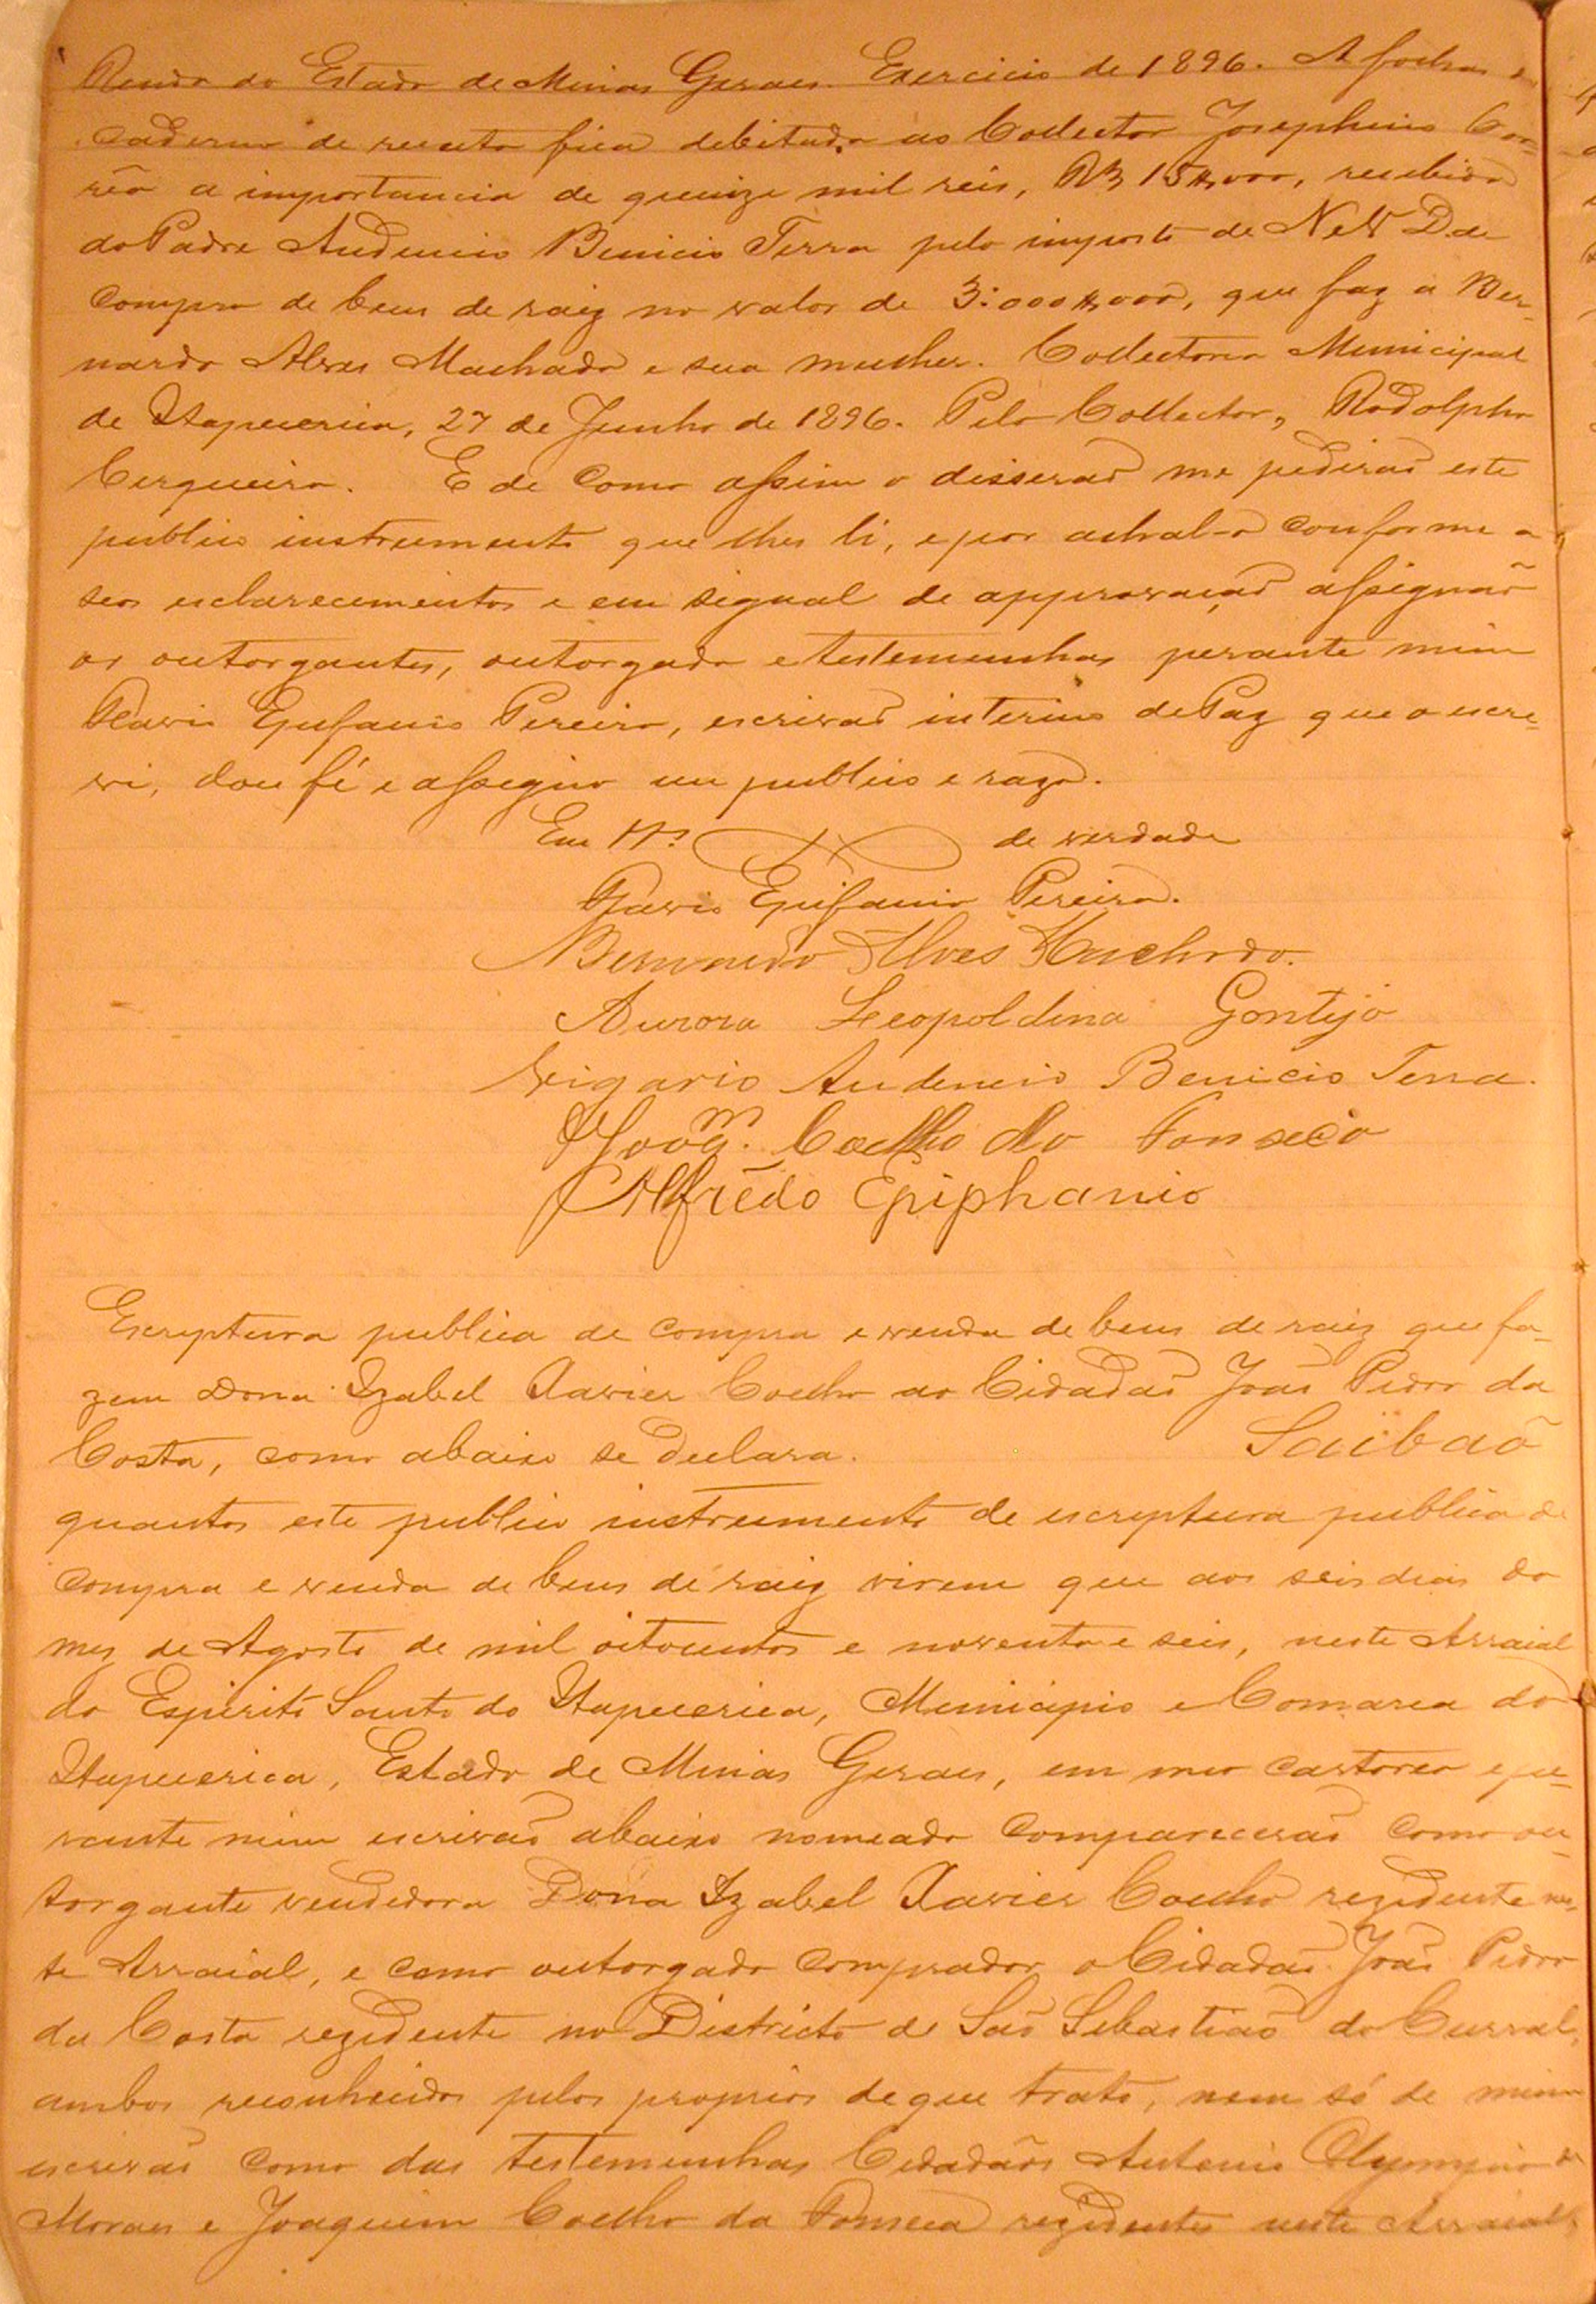 Renda do Estado de Minas Geraes. Exercicio de 1896. A folhas
caderno de receita fica debitado ao Collector Josephino Cor-
rêa a importancia de quinze mil reis, Rs 15$000, recebido
do Padre Audencio Benicio Terra pelo imposto de N e V D. de
compra de bens de raiz no valor de 3:000$000, que faz a Ber-
nardo Alves Machado e sua mulher. Collectoria Municipal
de Itapecerica, 27 de Junho de 1896. Pelo Collector, Rodolpho
Cerqueira. E de como assim o disserao me pedirao este
publico instrumento que lhes li, e por achal-o conforme a
seos esclarecimentos e em signal de approvaçao assignão
os outorgantes, outorgado e testemunhas perante mim
Epifanio Pereira, escrivao interino de Paz que o escre-
vi, dou fé e assigno em publico e razo.
Em de verdade
Epifanio Pereira.
Bernardo Alves Machado.
Aurora Leopoldina Gontijo
Vigario Audencio Benicio Terra.
Joaqm. Coelho da Fonseca
Alfrêdo Epiphanio
Escriptura publica de compra e venda de bens de raiz que fa-
zem Dona Izabel Xavier Coelho ao Cidadao Joao Pedro da
Costa, como abaixo se declara. Saibaõ
quantos este publico instrumento de escriptura publica de
compra e venda de bens de raiz virem que aos seis dias do
mez de Agosto de mil oitocentos e noventa e seis, neste Arraial
do Espirito Santo do Itapecerica, Municipio e Comarca do
Itapecerica, Estado de Minas Geraes, em meo cartorio e pe-
rante mim escrivao abaixo nomeado comparecerao como ou-
torgante vendedora Dona Izabel Xavier Coelho rezidente nes-
te Arraial, e como outorgado comprador o Cidadao Joao Pedro
da Costa rezidente no Districto de Sao Sebastiao do Curral,
ambos reconhecidos pelos proprios de que trato, nem só de mim
escrivao como das testemunhas Cidadãos Antonio Olympio de
Moraes e Joaquim Coelho da Fonseca rezidentes neste Arraial,